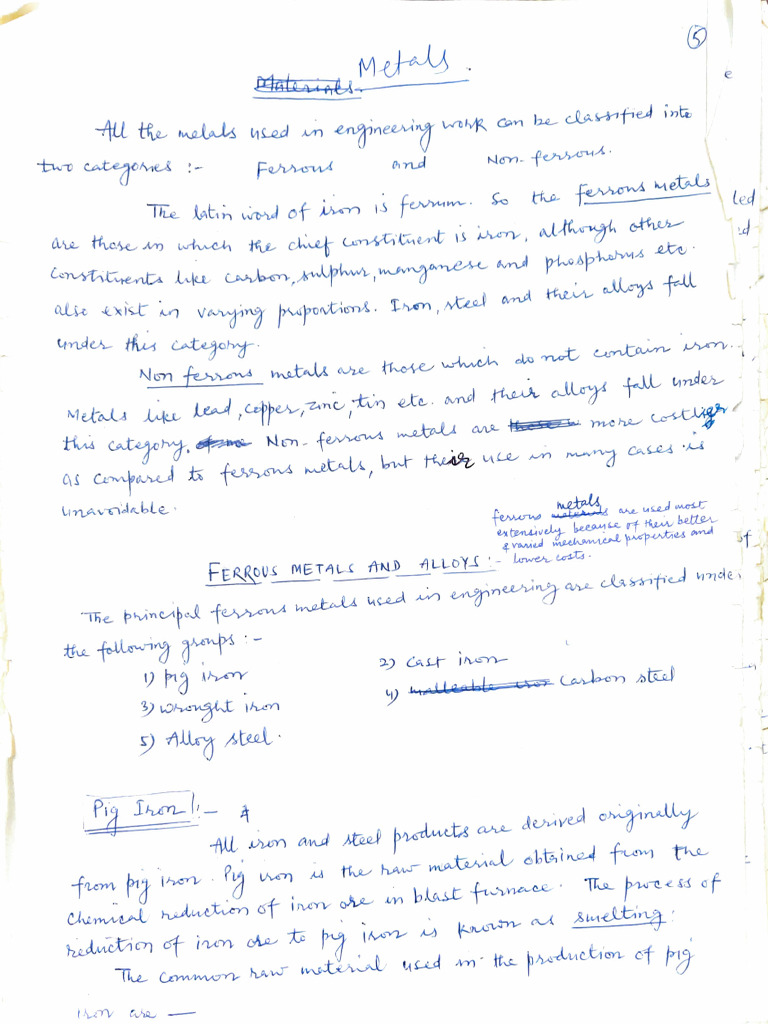 5
Metals.
All the metals used in engineering work can be classified into
two categories :- Ferrous and Non-ferrous.
The latin word of iron is ferrum. So the ferrous metals
are those in which the chief constituent is iron, although other
constituents like carbon, sulphur, manganese and phosphorus etc.
also exist in varying proportions. Iron, steel and their alloys fall
under this category.
Non ferrous metals are those which do not contain iron.
Metals like lead, copper, zinc, tin etc. and their alloys fall under
this category. Non-ferrous metals are more costlier
as compared to ferrous metals, but their use in many cases is
unavoidable.
ferrous metals are used most
extensively because of their better
& varied mechanical properties and
lower costs.
FERROUS METALS AND ALLOYS :-
The principal ferrous metals used in engineering are classified under
the following groups :-
1) pig iron 2) cast iron
3) wrought iron 4) malleable iron Carbon steel
5) Alloy steel.
Pig Iron :-
All iron and steel products are derived originally
from pig iron. Pig iron is the raw material obtained from the
chemical reduction of iron ore in blast furnace. The process of
reduction of iron ore to pig iron is known as smelting.
The common raw material used in the production of pig
iron are —